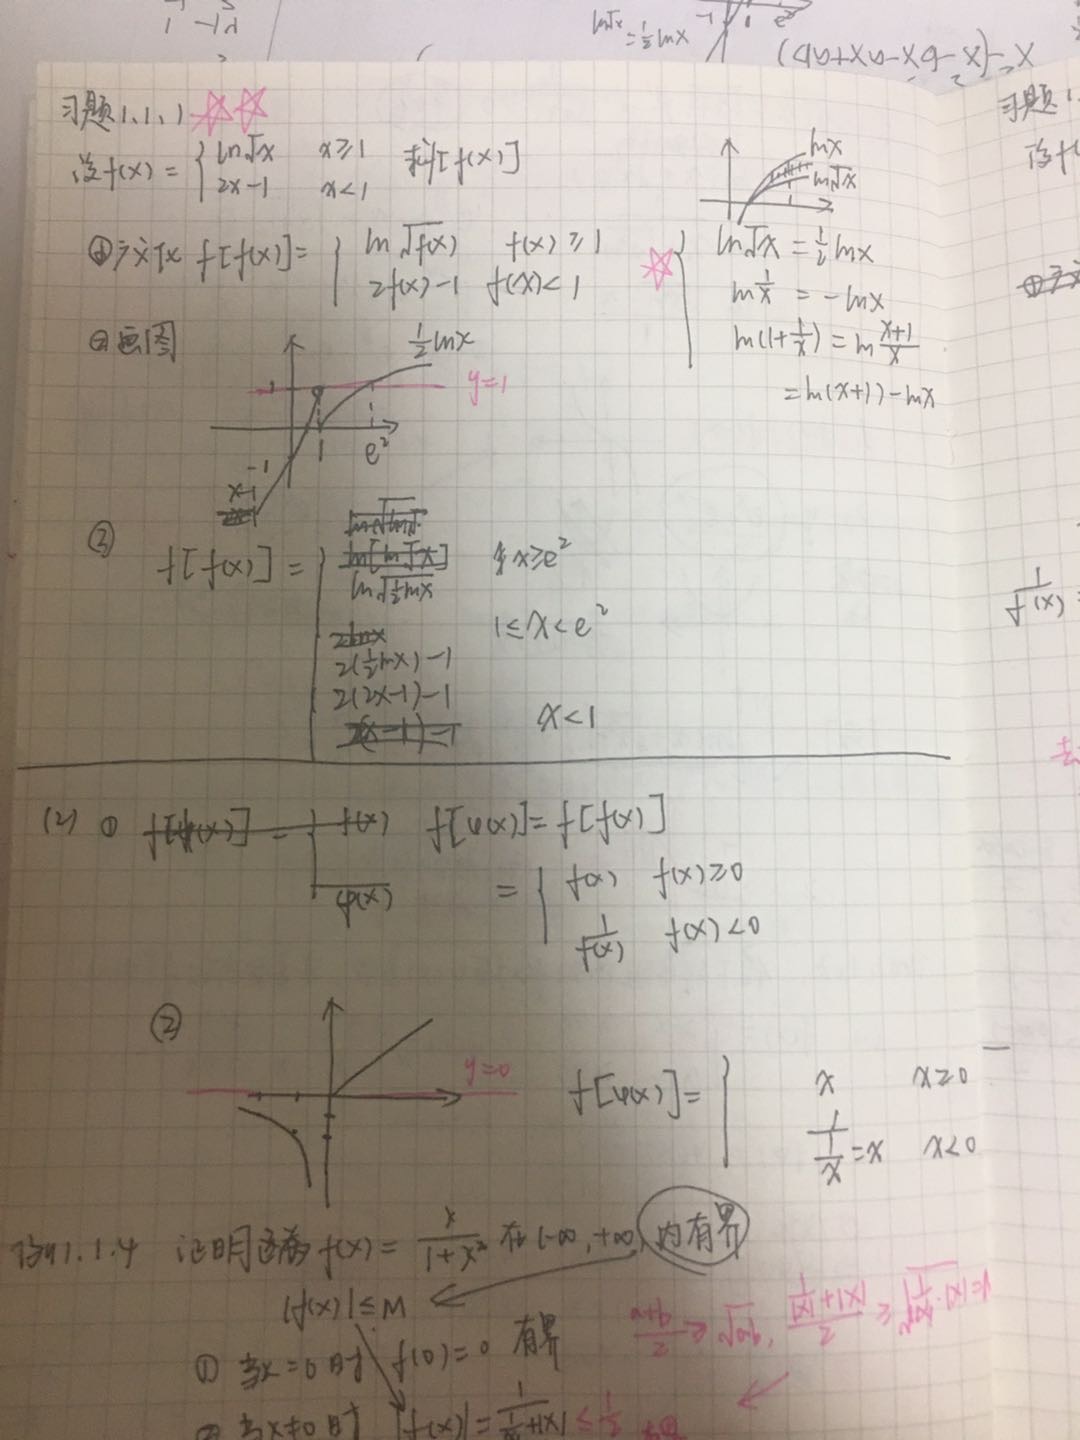 ln√x = 1/2 lnx
-1 1 e²
习题1.1.1
设f(x) = { ln√x x≥1
2x-1 x<1 求f[f(x)]
lnx
ln√x
①广义化 f[f(x)] = { ln√f(x) f(x)≥1
2f(x)-1 f(x)<1
ln√x = 1/2 lnx
ln 1/x = -lnx
ln(1+1/x) = ln (x+1)/x
= ln(x+1) - lnx
②画图
1/2 lnx
y=1
1
1 e²
-1
③
f[f(x)] = { ln√(1/2 lnx) x≥e²
2(1/2 lnx)-1 1≤x<e²
2(2x-1)-1 x<1
(2) ① f[φ(x)] = f[f(x)]
= { f(x) f(x)≥0
1/f(x) f(x)<0
②
y=0
f[φ(x)] = { x x≥0
1/(1/x) = x x<0
例1.1.4 证明函数 f(x) = x/(1+x²) 在(-∞,+∞)内有界
|f(x)| ≤ M
(a+b)/2 ≥ √ab, (1/|x| + |x|)/2 ≥ √(1/|x|·|x|) = 1
① 当x=0时 f(0)=0 有界
② 当x≠0时 |f(x)| = 1/(1/|x|+|x|) ≤ 1/2
习题1.
设f
1/f(x) =